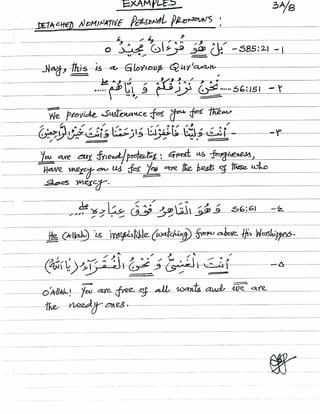 EXAMPLES
3A/8
DETACHED NOMINATIVE PERSONAL PRONOUNS :
١- S85:21 - بَلْ هُوَ قُرْءَانٌ مَجِيْدٌ ٥
Nay, This is a Glorious Qur'aan
٢- S6:151 - نَحْنُ نَرْزُقُكُمْ وَ إِيَّاهُمْ
We provide sustenance for you for them
٣- أَنْتَ وَلِيُّنَا فَاغْفِرْلَنَا وَارْحَمْنَا وَأَنْتَ خَيْرُ الرَّاحِمِيْنَ
You are our friend/protector: Grant us forgiveness,
Have mercy on us for You are the best of those who
shows mercy.
٤- S6:61 وَ هُوَ الْقَاهِرُ فَوْقَ عِبَادِهِ
He (Allah) is irresistible (watching) from above His Worshippers.
٥- أَنْتَ الْغَنِيُّ وَ نَحْنُ الْفُقَرَآءُ (يَا اَللّٰهُ)
O'Allah! You are free of all wants and we are
the needy ones.